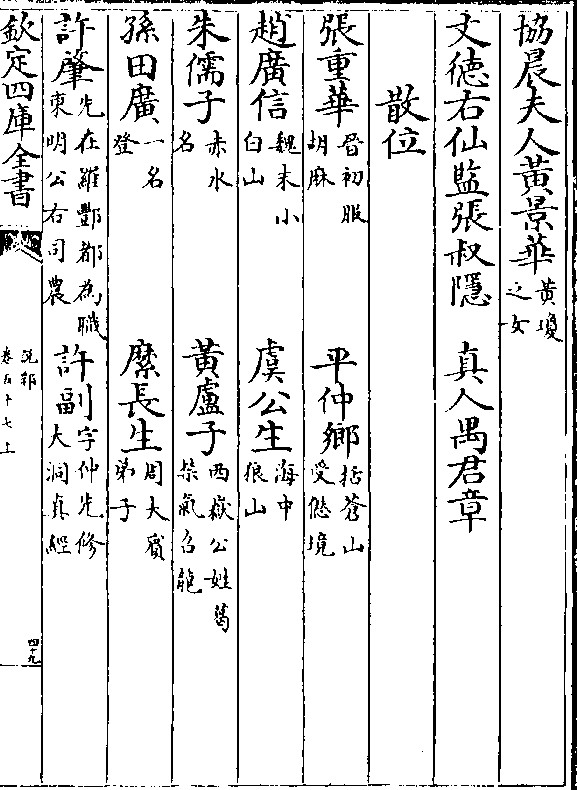 協晨夫人黃景華黃瓊之女
文徳右仙監張叔隱　真人禺君章
散位
張重華晉初服胡麻　平仲鄉括蒼山受僊境
趙廣信魏末小白山　虞公生海中狼山
朱儒子赤水名　黃盧子西嶽公姓葛禁氣召龍
孫田廣一名登　縻長生周大賔弟子
許肇先在羅酆都為職東明公右司農　許副字仲先修大洞真經
欽定四庫全書　說郛卷五十七上　四十九